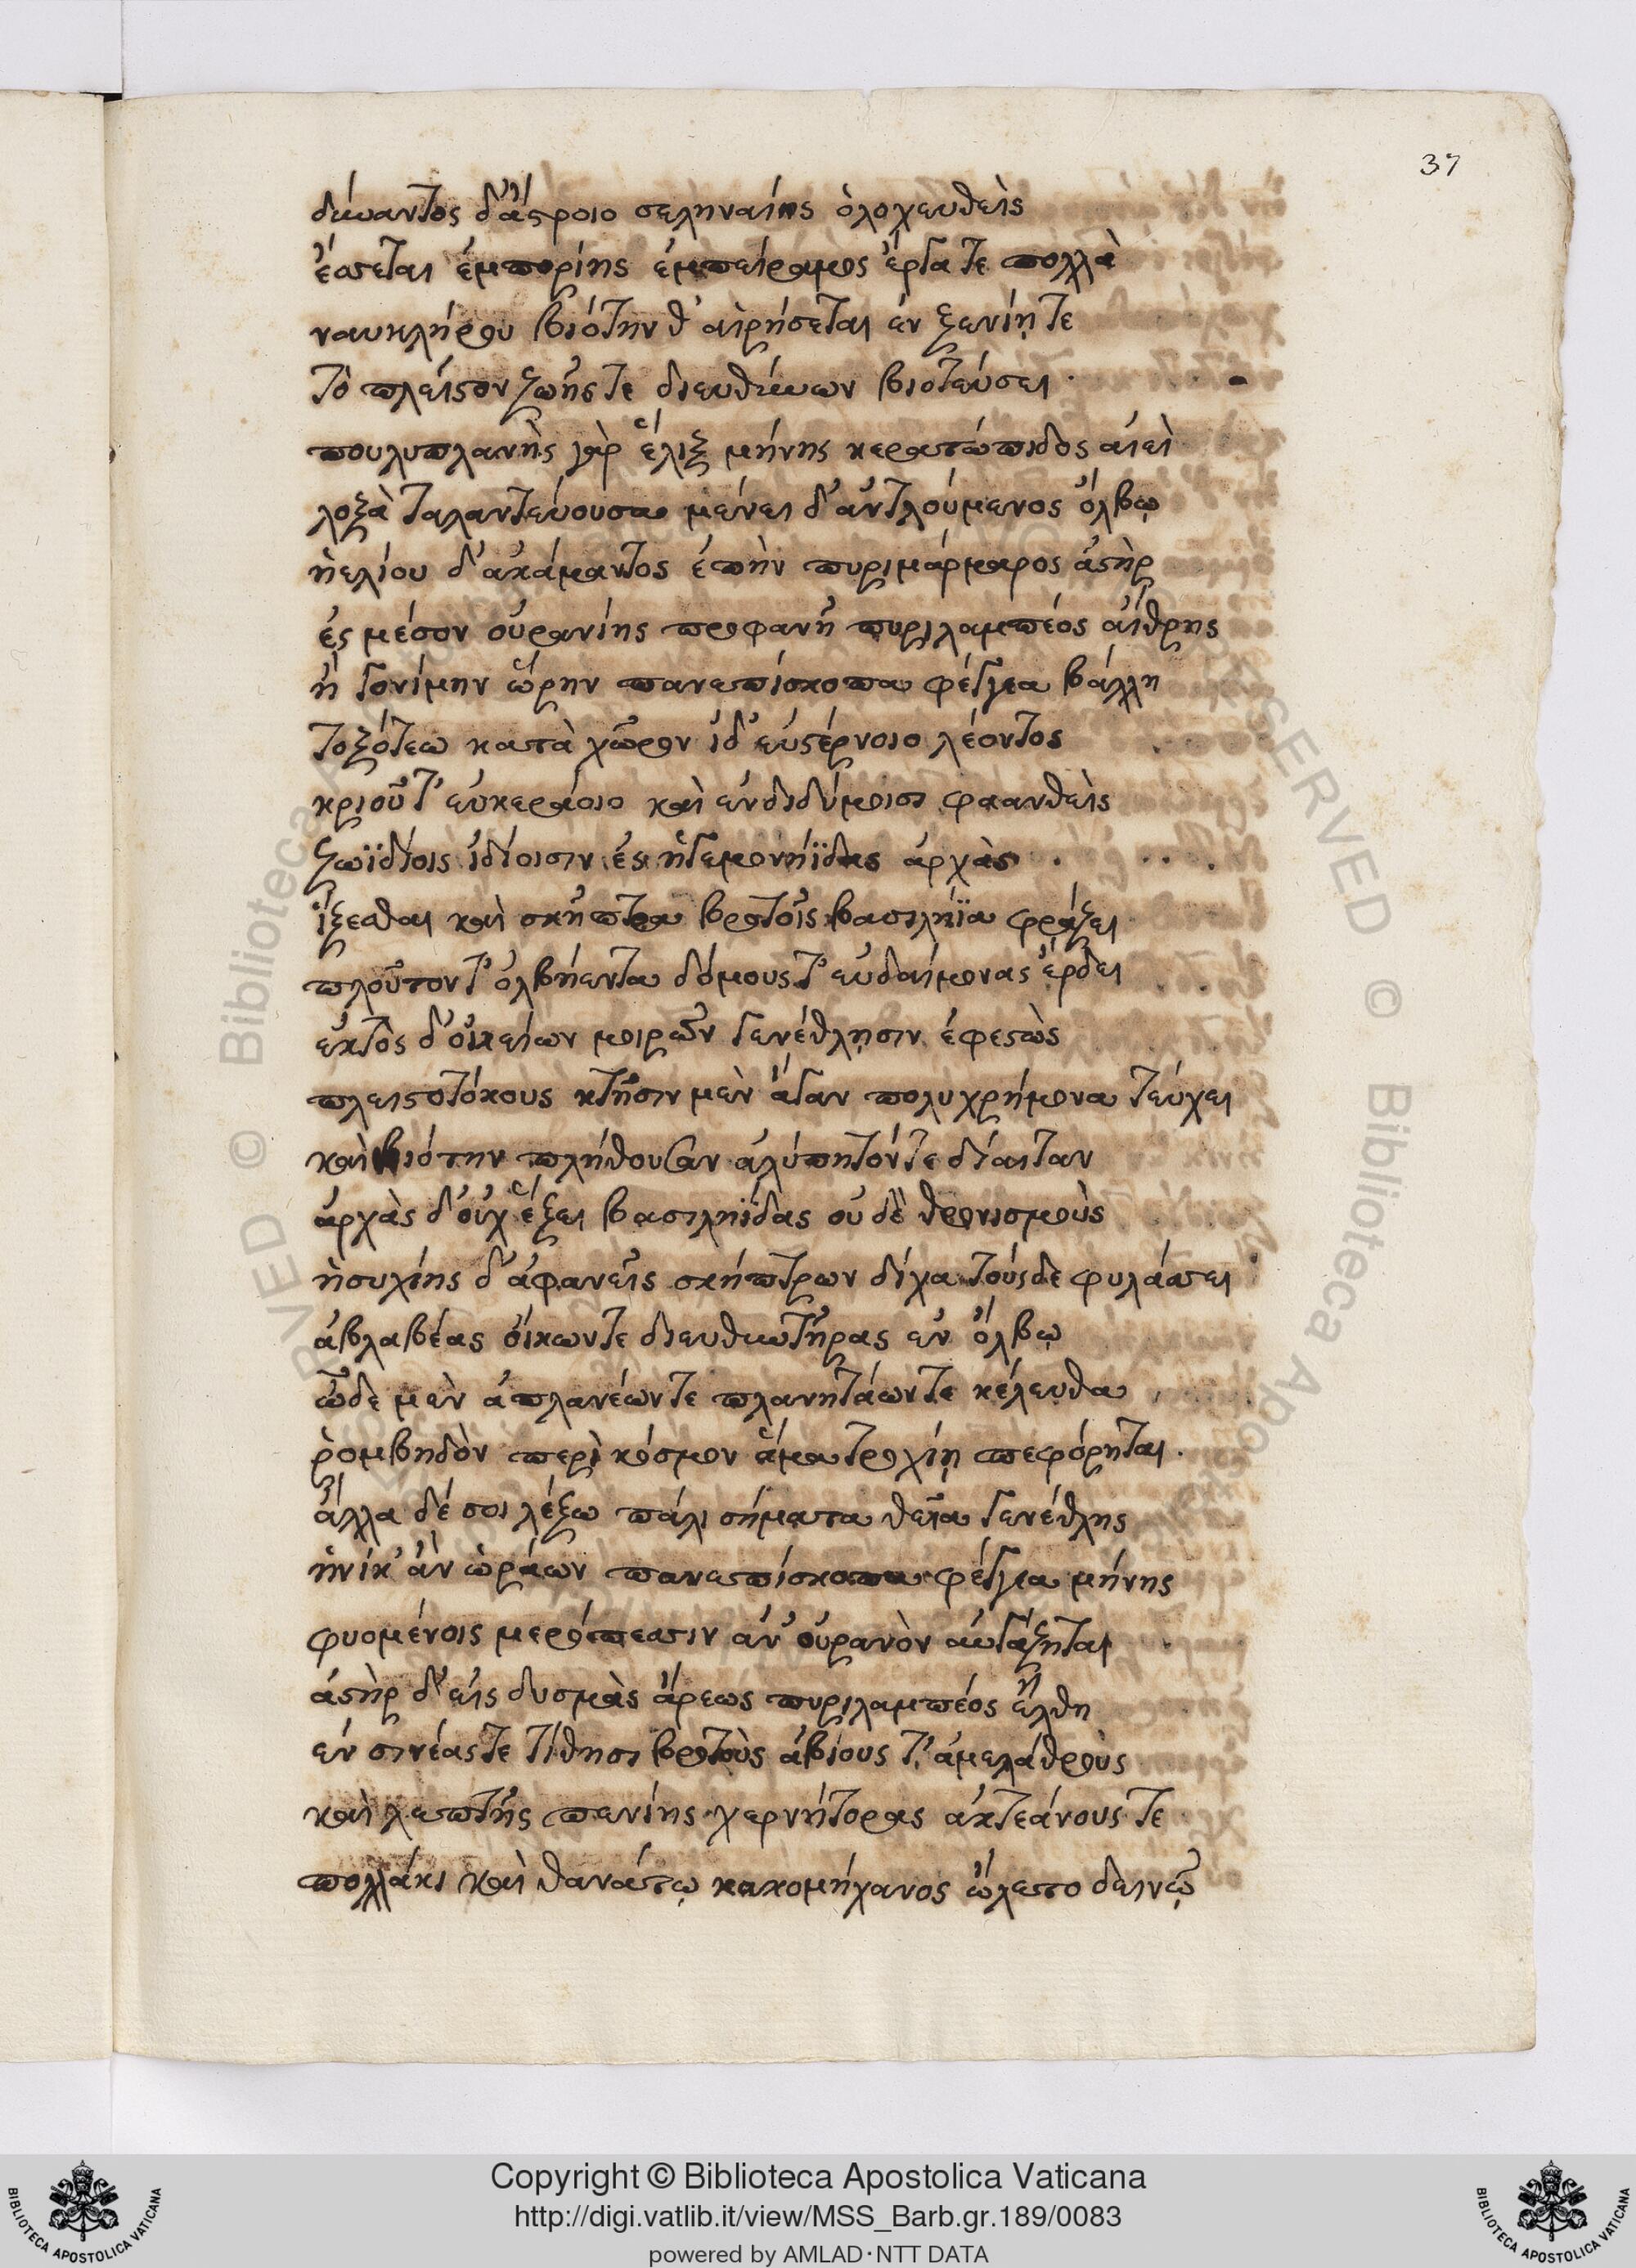 37
δύναντος δ' ἄστροιο σεληναίης ὁλοχευθεὶς
ἔσεται ἐμπορίης ἐμπείραμος ἔργα τε πολλὰ
ναυκλήρου βιότην θ' αἱρήσεται ἐν ξενίῃ τε
τὸ πλεῖστον ζωῆς τε διευθύνων βιοτεύσει.
πουλυπλανὴς γὰρ ἕλιξ μήνης κερατώπιδος αἰεὶ
λοξὰ ταλαντεύουσα μένει δ' ἀντλούμενος ὄλβῳ
ἠελίου δ' ἀκάμαντος ἐπὴν πυριμάρμαρος ἀστὴρ
ἐς μέσον οὐρανίης προφανῆ πυριλαμπέος αἴθρης
ἢ γονίμην ὥρην πανεπίσκοπα φέγγεα βάλλη
τοξότεω κατὰ χῶρον ἰδ' εὐστέρνοιο λέοντος
κριοῦ τ' εὐκεράοιο καὶ ἐν διδύμοισι φαανθεὶς
ζωϊδίοις ἰδίοισιν ἐς ἡγεμονηΐδας ἀρχὰς
ἵξεσθαι καὶ σκῆπτρα βροτοῖς βασιλήϊα φράζει
πλοῦτον τ' ὀλβήεντα δόμους τ' εὐδαίμονας ἔρδει
ἐκτὸς δ' οἰκείων μοιρῶν γενέθλησιν ἐφεστὼς
πλειστοτόκους κτῆσιν μὲν ἄγαν πολυχρήμονα τεύχει
καὶ βιότην πλήθουσαν ἀλύπητόν τε δίαιταν
ἀρχὰς δ' οὐχ ἕξει βασιληΐδας οὐδὲ θρονισμοὺς
ἡσυχίης δ' ἀφανεῖς σκήπτρων δίχα τούσδε φυλάσσει
ἀβλαβέας οἴκων τε διευθυντῆρας ἐν ὄλβῳ
ὧδε μὲν ἀπλανέων τε πλανητάων τε κέλευθα
ῥομβηδὸν περὶ κόσμον ἅμα τροχίῃ πεφόρηται.
ἄλλα δέ σοι λέξω πάλι σήματα θεῖα γενέθλης
ἡνίκ' ἂν ὡράων πανεπίσκοπα φέγγεα μήνης
φυομένοις μερόπεσσιν ἀν' οὐρανὸν αὐγάζηται
ἀστὴρ δ' εἰς δυσμὰς ἄρεως πυριλαμπέος ἔλθη
ἐν σινέας τε τίθησι βροτοὺς ἀβίους τ' ἀμελάθρους
καὶ λεπτῆς πενίης χερνήτορας ἀκτεάνους τε
πολλάκι καὶ θανάτῳ κακομήχανος ὤλετο δεινῷ
Copyright © Biblioteca Apostolica Vaticana
http://digi.vatlib.it/view/MSS_Barb.gr.189/0083
powered by AMLAD·NTT DATA